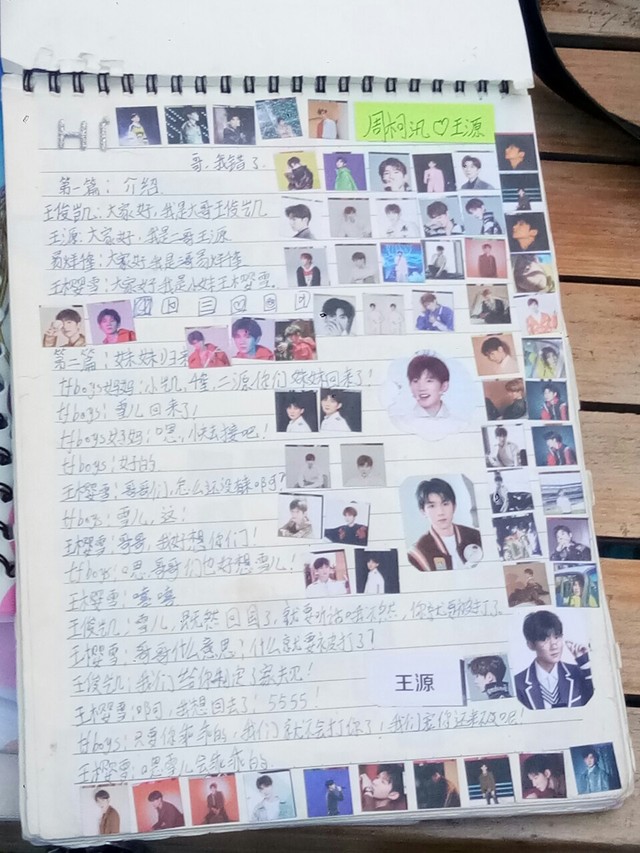 Hi
周柯汛♡王源
哥,我错了.
第一篇:介绍
王俊凯:大家好,我是大哥王俊凯
王源:大家好,我是二哥王源
易烊千玺:大家好我是易烊千玺
王樱雪:大家好我是小妹王樱雪.
第二篇:妹妹归来
tfboys妈妈:小凯,二源你们妹妹回来了!
tfboys:雪儿回来了!
tfboys妈妈:嗯,快去接吧!
tfboys:好的
王樱雪:哥哥们,怎么还没来啊?
tfboys:雪儿,这!
王樱雪:哥哥,我好想你们!
tfboys:嗯,哥哥们也好想雪儿!
王樱雪:嘻嘻
王俊凯:雪儿,既然回国了,就要听话哦不然,你就要被打了.
王樱雪:哥哥什么意思?什么就要被打了?
王俊凯:我们给你制定了家规!
王樱雪:啊,我想回去了!5555!
tfboys:只要你乖乖的,我们就不会打你了,我们宠你还来不及呢!
王樱雪:嗯雪儿会乖乖的.
王源